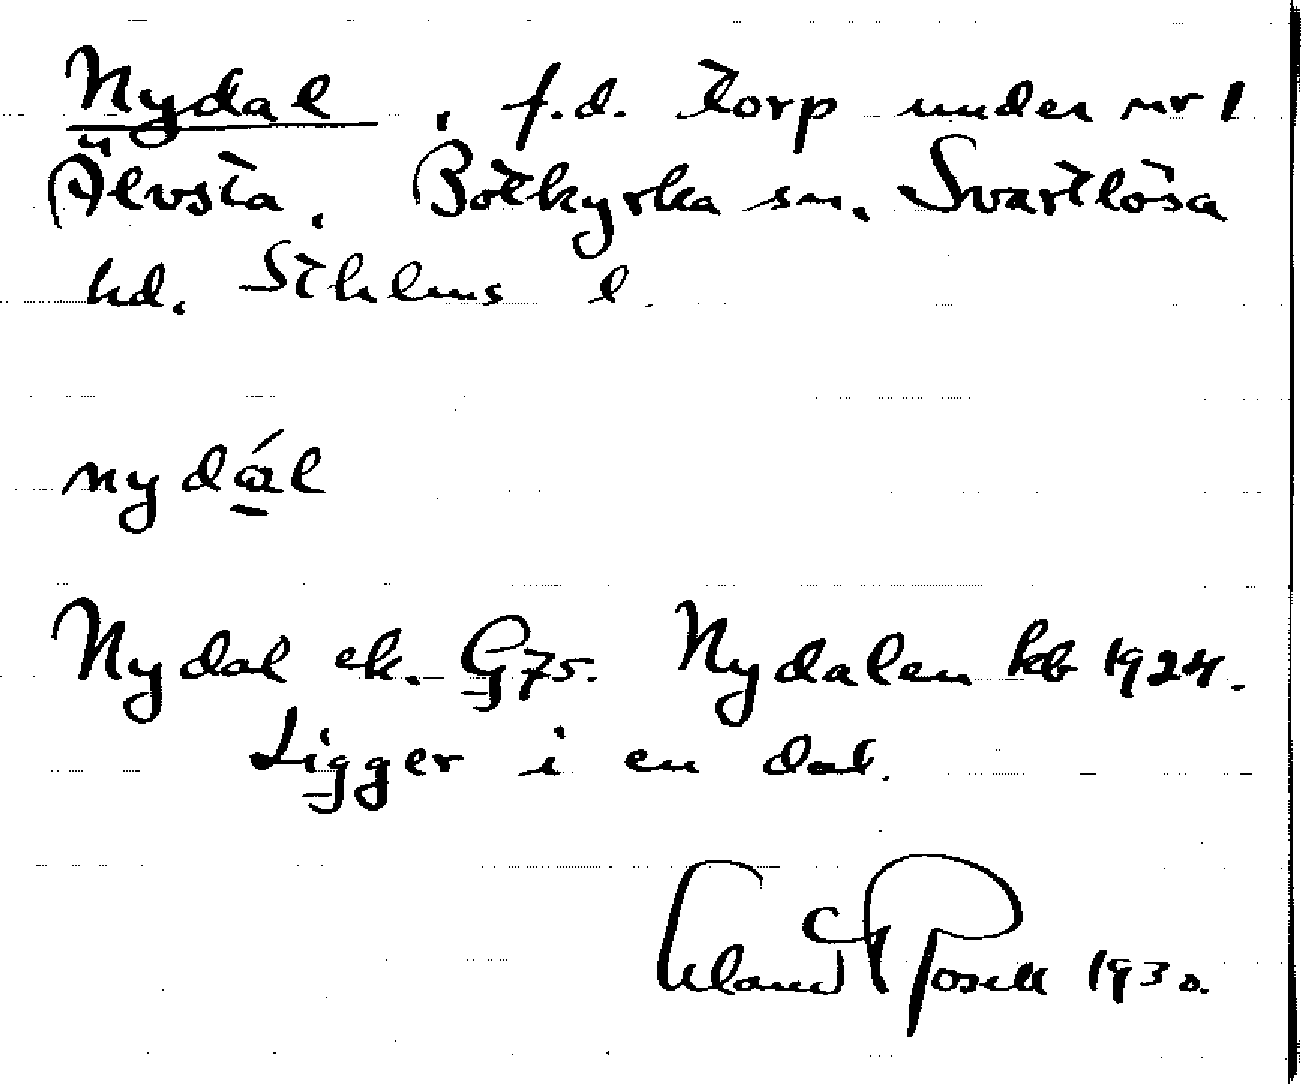 Nydal, f.d. torp under nr 1
Älvsta, Botkyrka sn. Svartlösa
hd. Sthlms l.
nydá̱l
Nydal ek. G75. Nydalen kb 1924.
Ligger i en dal.
Rosell 1930.